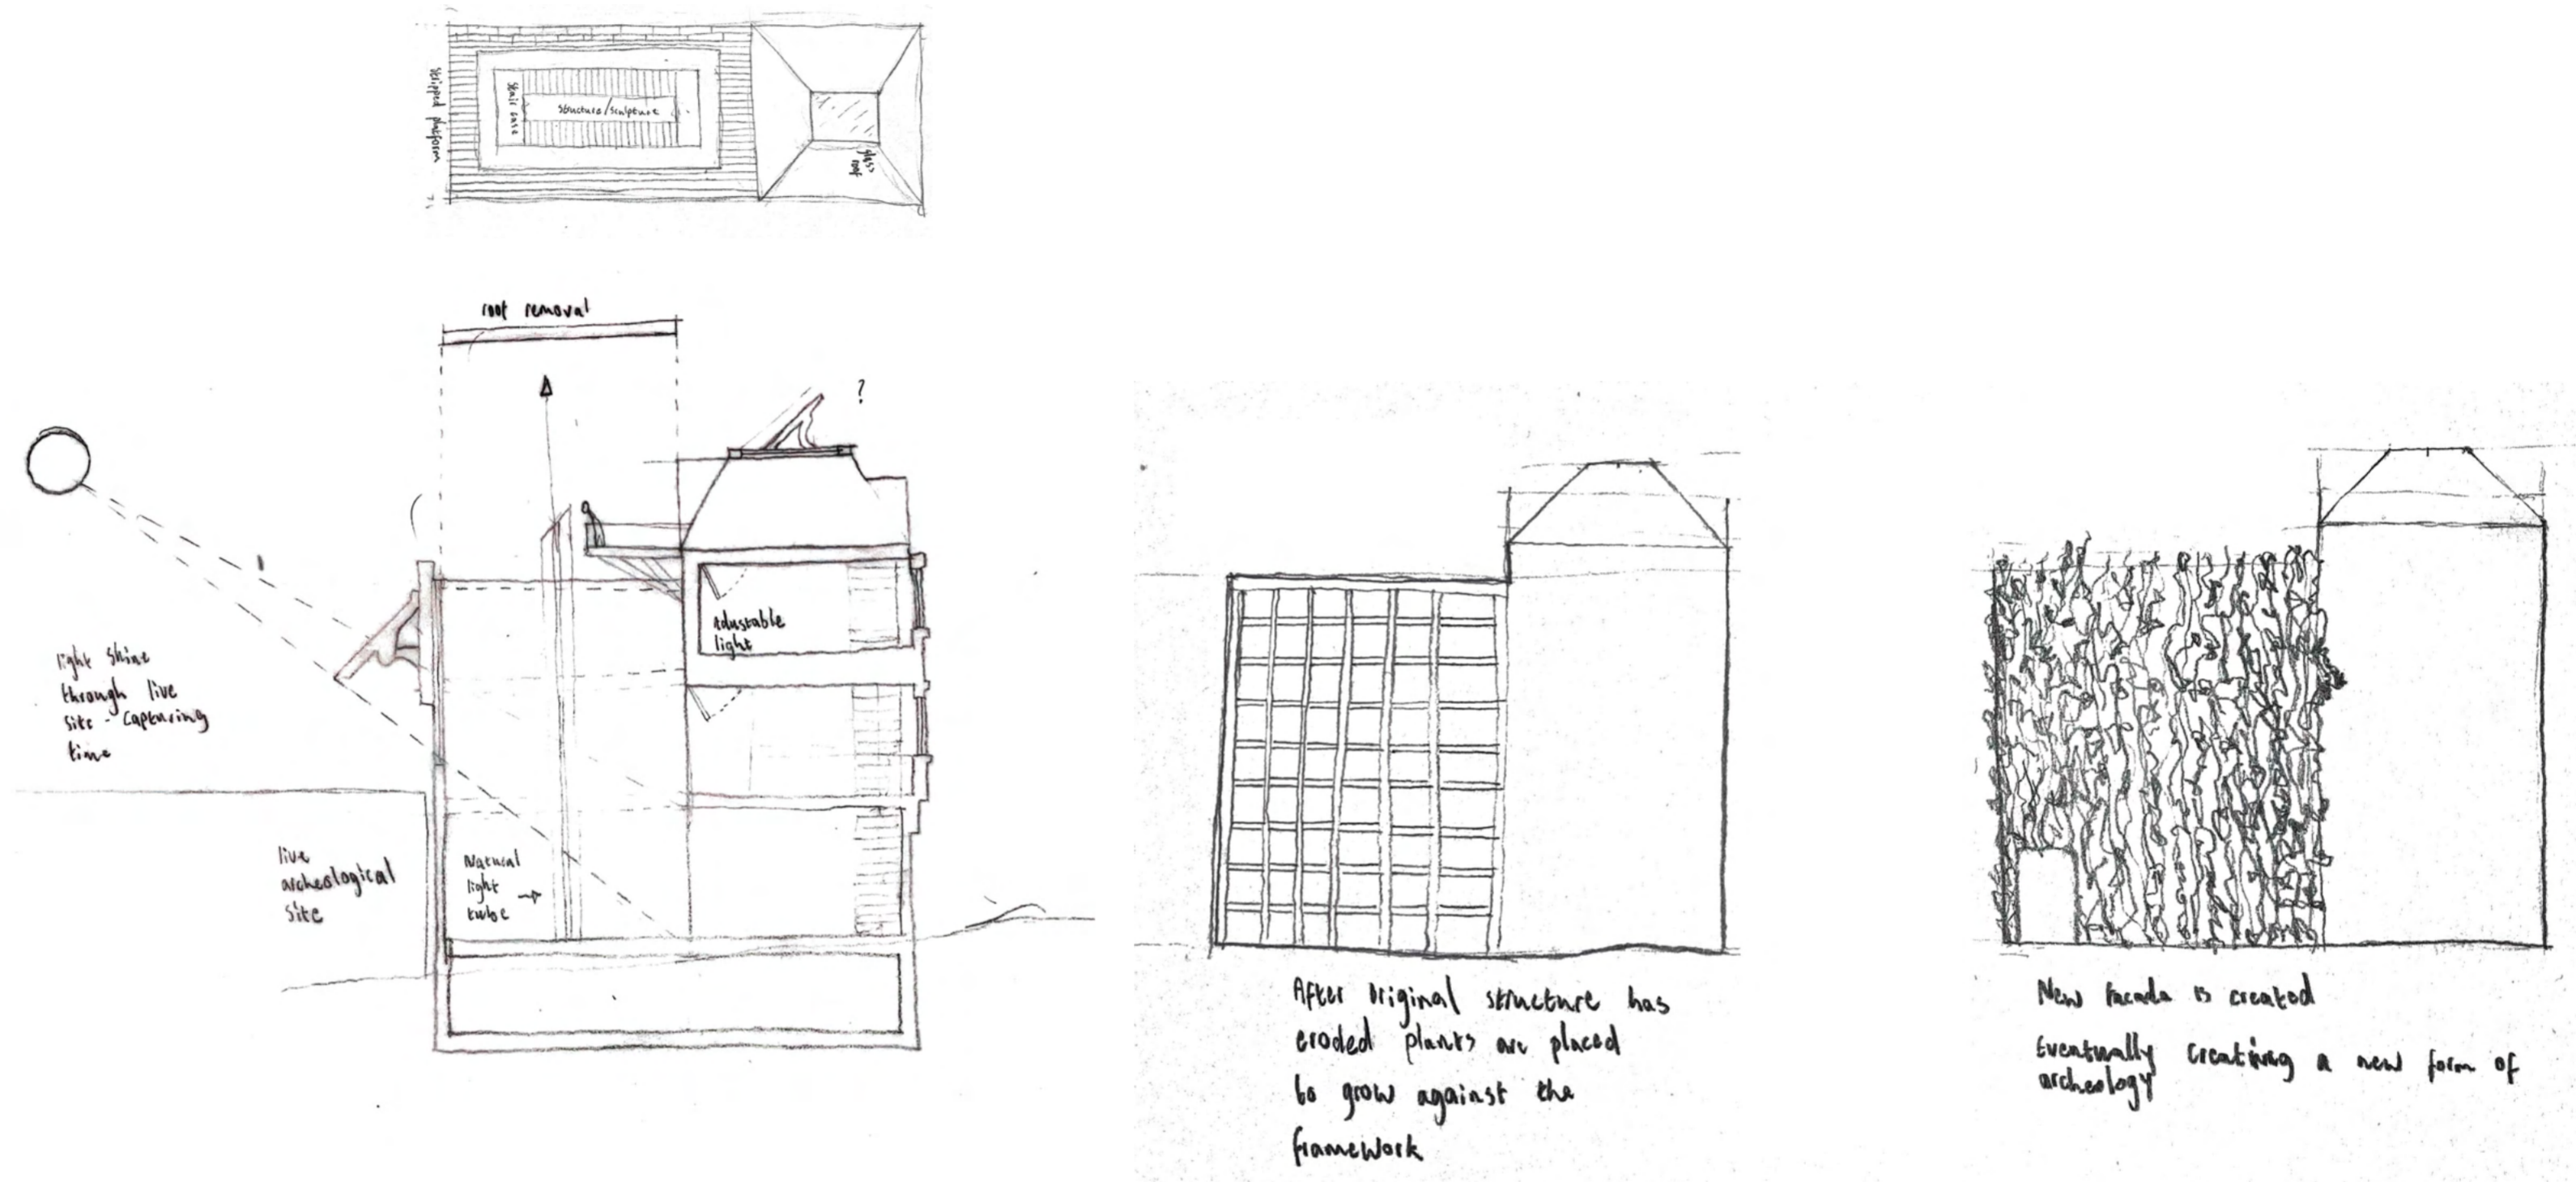 stripped platform
stair case
structure/sculpture
glass
roof
roof removal
?
adustable
light
light shine
through live
site - capturing
time
live
archeological
site
Natural
light
tube
After original structure has
eroded plants are placed
to grow against the
framework
New facade is created
Eventually creating a new form of
archeology